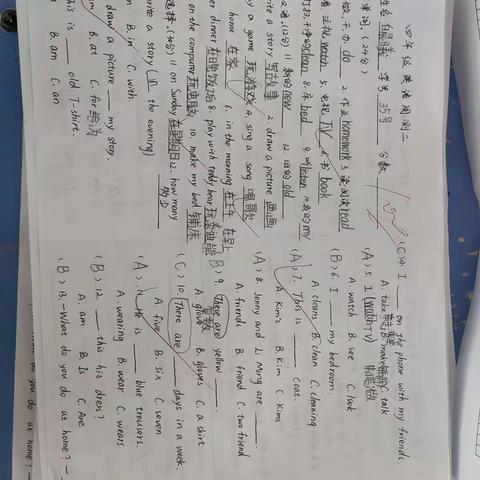 四年级英语周测
学号 35号 分数 100
单词。(24分)
做,干,办 do 2. 作业 homework 3. 读,阅读 read
看,注视 watch 5. 电视 TV 6. 书 book
打扫,干净的 clean 8. 床 bed 9. 听 listen 10. 我的 my
11. 新的 new 12. 旧的 old
write a story 写故事 2. draw a picture 画画
play a game 玩游戏 4. sing a song 唱歌
home 在家 6. in the morning 在上午 在早上
after dinner 在晚饭后 8. play with teddy bear
on the computer 玩电脑 10. make my bed 铺床
11. on Sunday 在星期日 12. how many 多少
选择。
write a story (in the evening)
B. in C. with
draw a picture ___ my story.
B. at C. for 给,为
This is ___ old T-shirt.
B. am C. an
(C) 4. I ___ on the phone with my friends.
A. take B. make C. talk
(A) 5. I (watch TV)
A. watch B. see C. look
(B) 6. I ___ my bedroom.
A. cleans B. clean C. cleaning
(A) 7. This is ___ coat.
A. Kim's B. Kim C. Kims
(A) 8. Jenny and Li Ming are ___.
A. friends B. friend C. two friend
(B) 9. These are yellow ___.
A. glove B. gloves C. a skirt
(C) 10. There are ___ days in a week.
A. five B. six C. seven
(A) 11. He is ___ blue trousers.
A. wearing B. wear C. wears
(B) 12. ___ this his dress?
A. am B. Is C. Are
(B) 13. -What do you do at home? -